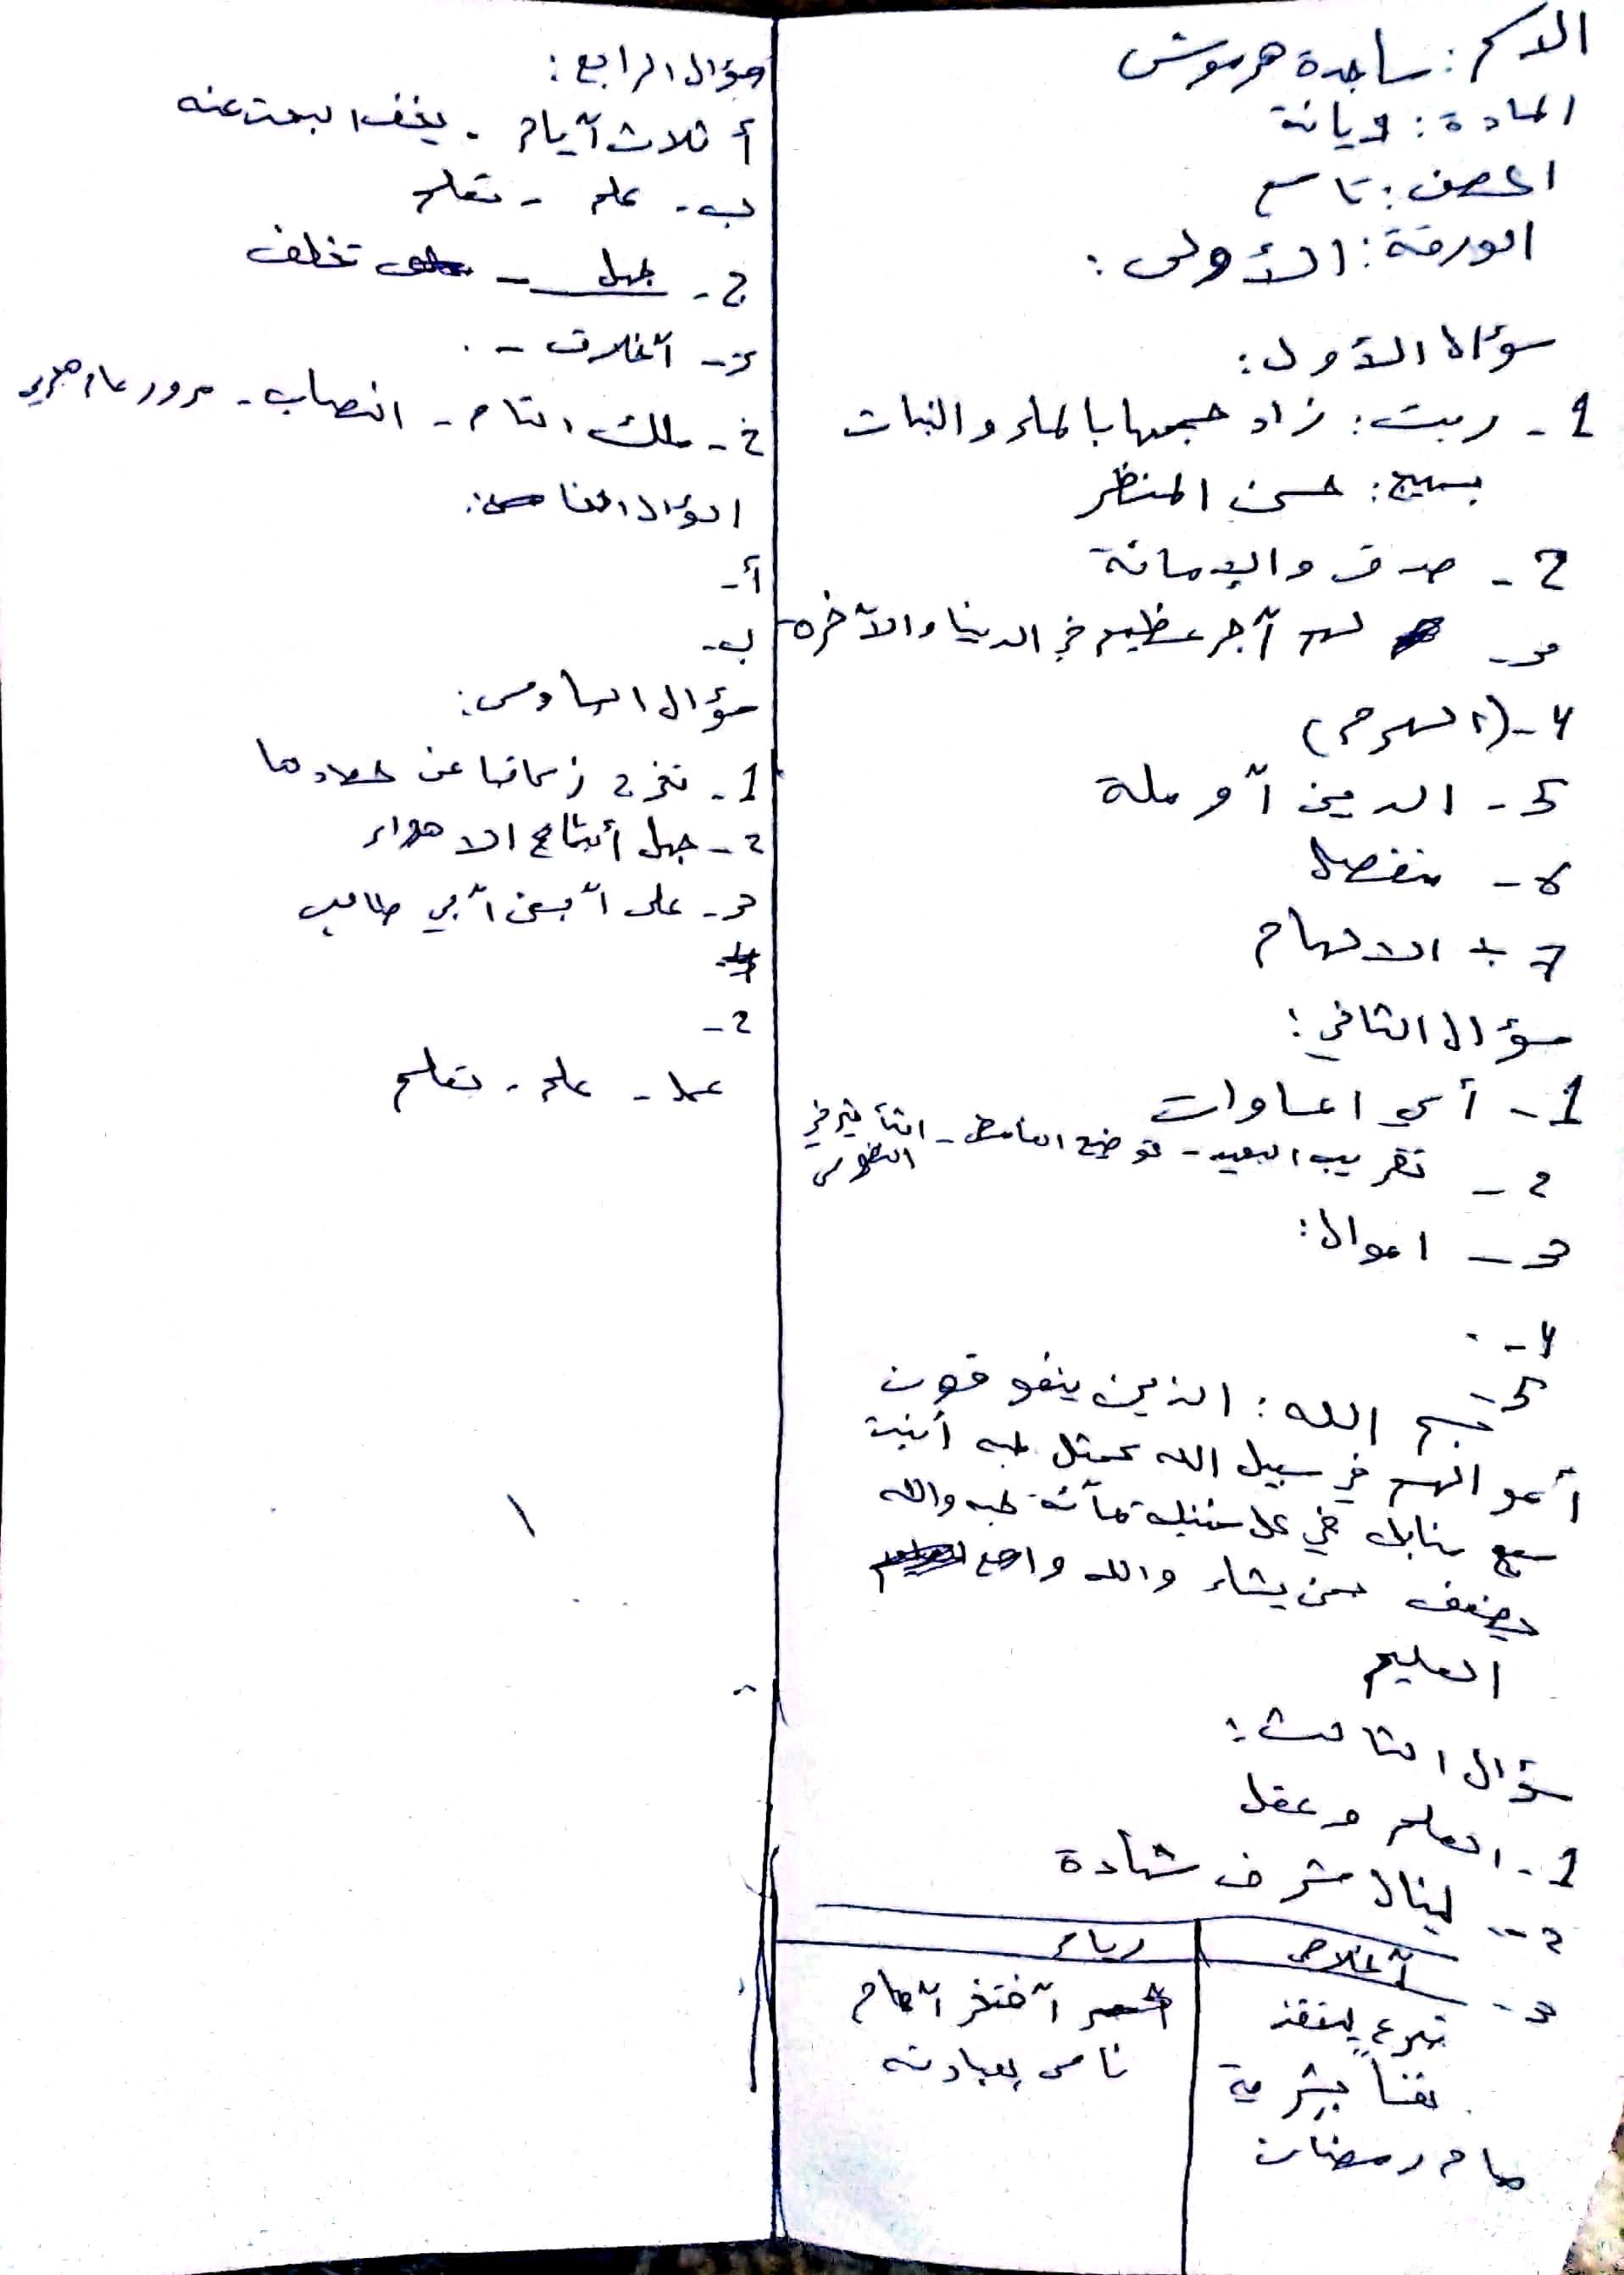 الاسم: ساجدة هرموش
المادة: ديانة
الصف: تاسع
الورقة: الأولى:
سؤال الأول:
1 - ربت: زاد حجمها بالماء والنبات
بهيج: حسن المنظر
2 - صدق والإمانة
3 - لهم آجر عظيم في الدينا والآخره
4 - (الهرم)
5 - الدين آو ملة
6 - منفصل
7 - الالهام
سؤال الثاني:
1 - أسس اعساوات
2 - تقريب البعيد - توضيح الغامض - التأثير في
النفوس
3 - اموال:
4 -
5 - الله: الذين ينفوقون
أموالهم في سبيل الله كمثل حبه أنبت
سبع سنابل في كل سنبلة مآئة حبه والله
يضعف لمن يشاء والله واسع
العليم
سؤال الثالث:
1 - العلم وعقل
2 - لينال شرف شهادة
3 -
آخلاص
رياء
تبرع لينقذ
نفساً بشرية
صام رمضان
آفتخر آمام
ناس بعبادته
سؤال الرابع:
أ ثلاث آيام -
ب - علم - تعلم
ج - جهل - تخلف
د - آخلاق -
خ - ملك التام - النصاب - مرور عام هجري
السؤال الخامس:
أ -
ب -
سؤال السادس:
1 - تخرج زكاتها عن
2 - جهل أتباع الاهواء
3 - على آبن آبي طالب
2 -
عمل - علم - تعلم